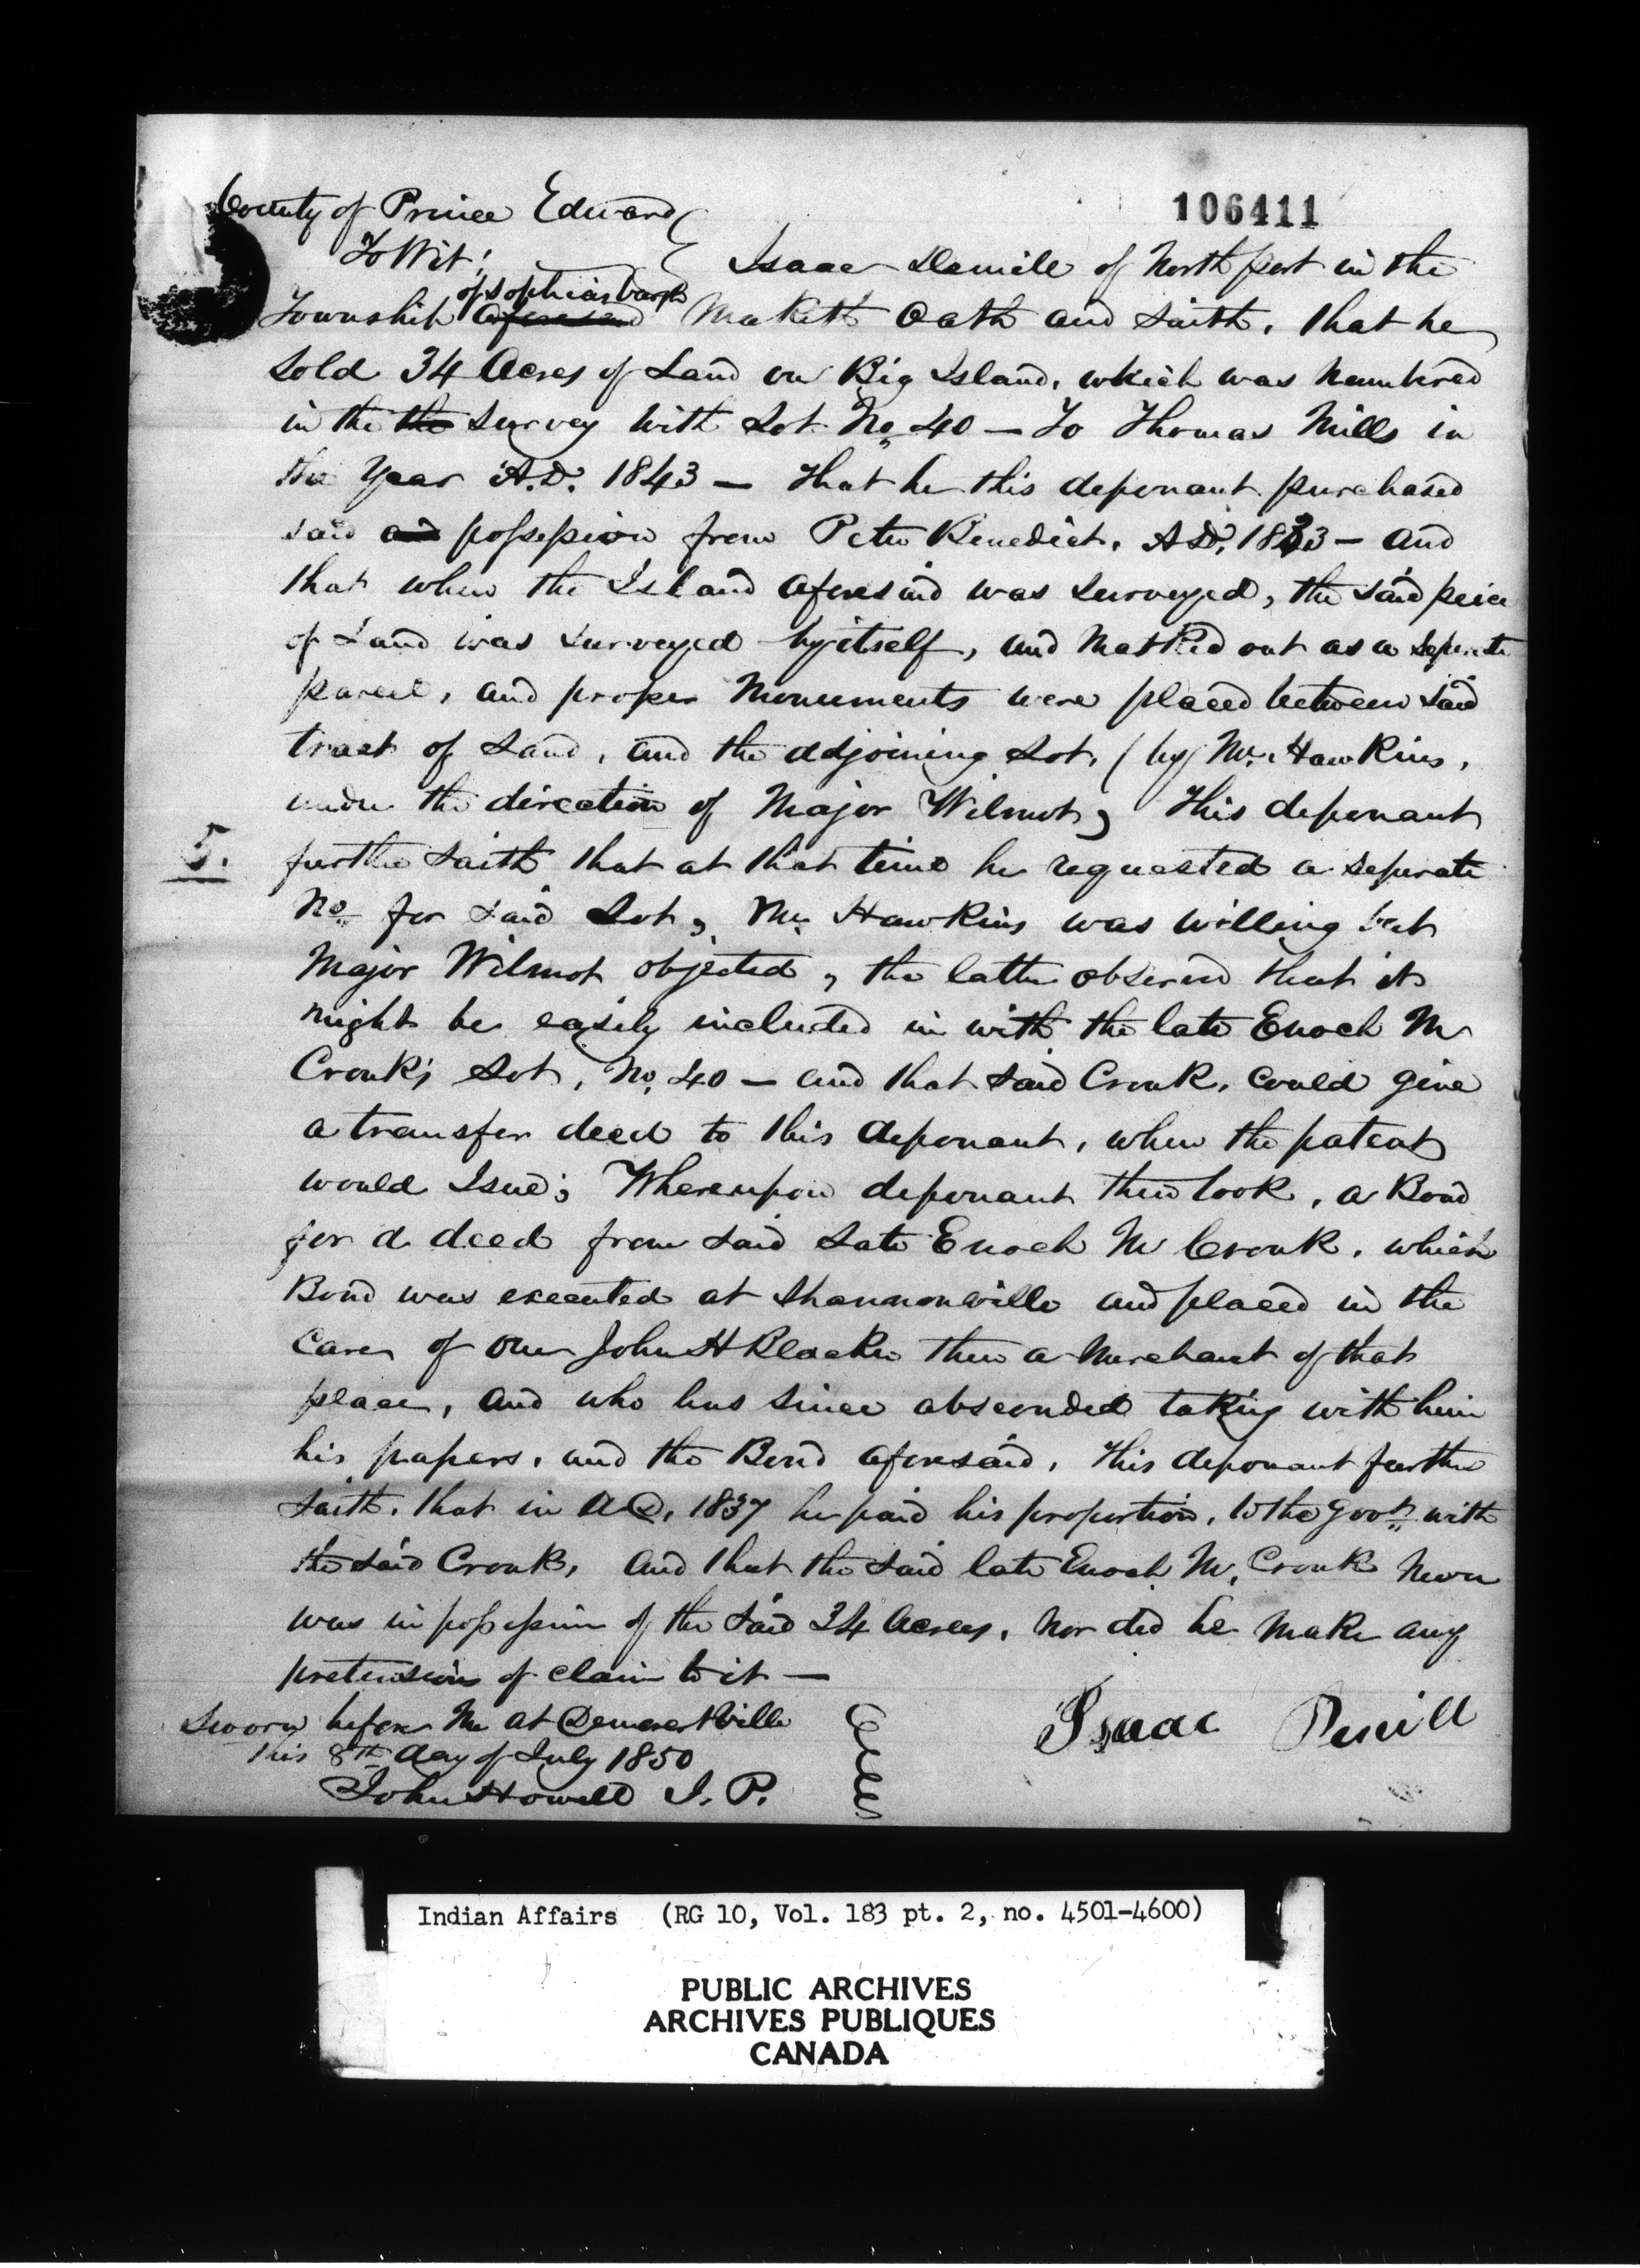 106411
County of Prince Edward
To Wit!
Isaac Demile of North port in the
of Sophiasburgh
Township aforesaid Maketh Oath and Saith, that he
Sold 34 Acres of Land on Big Island, which was Numbered
in the the Survey with Lot No. 40 — To Thomas Mills in
the Year A.D. 1843 — that he this deponant purchased
said and possession from Peter Benedict, A.D. 1833 — and
that when the Island aforesaid was surveyed, the said peice
of Land was surveyed by itself, and Marked out as a seperate
parcel, and proper Monuments were placed between said
tract of Land, and the adjoining Lot, (by Mr. Hawkins,
under the direction of Major Wilmot, This deponant
5.
further saith that at that time he requested a seperate
No. for said Lot, Mr. Hawkins was willing but
Major Wilmot objected, the latter observed that it
might be easily included in with the late Enoch M
Cronk's Lot, No. 40 — and that said Cronk, could give
a transfer deed to this deponant, when the patent
would Isue; Whereupon deponant then took, a Bond
for a deed from said late Enoch M Cronk, which
Bond was executed at Shannonville and placed in the
care of one John H Blacker then a Merchant of that
place, and who has since absconded taking with him
his papers, and the Bond aforesaid, This deponant further
saith, that in A.D. 1837 he paid his proportion, to the Govt. with
the said Cronk, and that the said late Enoch M. Cronk Never
was in possession of the said 34 Acres, nor did he Make any
pretensions of claim to it —
Sworn before Me at Demorestville
this 8th day of July 1850
John Howell J. P.
Isaac Demill
Indian Affairs (RG 10, Vol. 183 pt. 2, no. 4501-4600)
PUBLIC ARCHIVES
ARCHIVES PUBLIQUES
CANADA